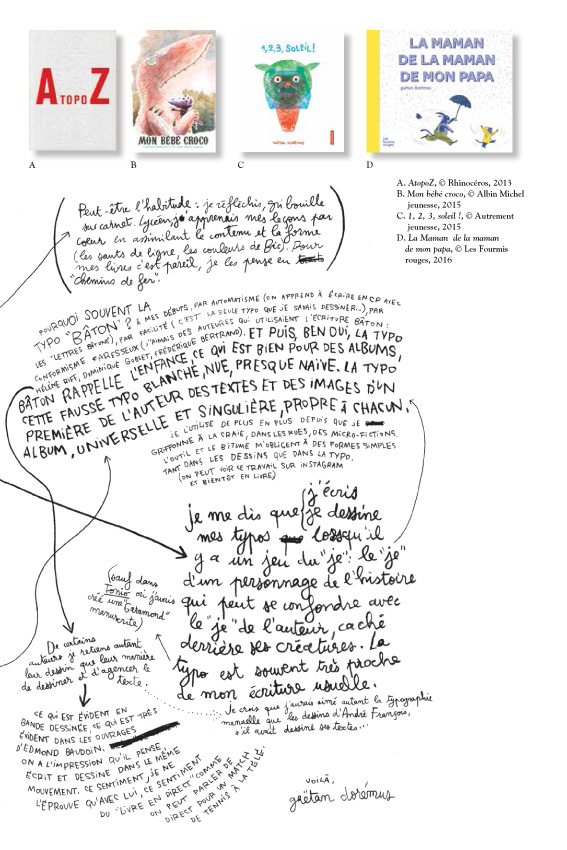 A TOPO Z
MON BÉBÉ CROCO
1, 2, 3, SOLEIL!
LA MAMAN
DE LA MAMAN
DE MON PAPA
gaëtan dorémus
A
B
C
D
A. AtopoZ, © Rhinocéros, 2013
B. Mon bébé croco, © Albin Michel
jeunesse, 2015
C. 1, 2, 3, soleil !, © Autrement
jeunesse, 2015
D. La Maman de la maman
de mon papa, © Les Fourmis
rouges, 2016
Peut-être l'habitude : je réfléchis, gribouille
sur carnet. Lycéen, j'apprenais mes leçons par
cœur en assimilant le contenu et la forme
(les sauts de ligne, les couleurs de Bic). Pour
mes livres c'est pareil, je les pense en
"chemins de fer".
POURQUOI SOUVENT LA
TYPO "BÂTON" ? À MES DÉBUTS, PAR AUTOMATISME (ON APPREND À ÉCRIRE EN CP AVEC
LES "LETTRES BÂTONS"), PAR FACILITÉ (C'EST LA SEULE TYPO QUE JE SAVAIS DESSINER...), PAR
CONFORMISME PARESSEUX (J'AIMAIS DES AUTEURES QUI UTILISAIENT L'ÉCRITURE BÂTON :
HÉLÈNE RIFF, DOMINIQUE GOBLET, FRÉDÉRIQUE BERTRAND). ET PUIS, BEN OUI, LA TYPO
BÂTON RAPPELLE L'ENFANCE, CE QUI EST BIEN POUR DES ALBUMS,
CETTE FAUSSE TYPO BLANCHE, NUE, PRESQUE NAÏVE. LA TYPO
PREMIÈRE DE L'AUTEUR DES TEXTES ET DES IMAGES D'UN
ALBUM, UNIVERSELLE ET SINGULIÈRE, PROPRE À CHACUN.
JE L'UTILISE DE PLUS EN PLUS DEPUIS QUE JE
GRIFFONNE À LA CRAIE, DANS LES RUES, DES MICRO-FICTIONS.
L'OUTIL ET LE BITUME M'OBLIGENT À DES FORMES SIMPLES
TANT DANS LES DESSINS QUE DANS LA TYPO.
(ON PEUT VOIR CE TRAVAIL SUR INSTAGRAM
ET BIENTÔT EN LIVRE)
j'écris
je me dis que je dessine
mes typos lorsqu'il
y a un jeu du "je" : le "je"
d'un personnage de l'histoire
qui peut se confondre avec
le "je" de l'auteur, caché
derrière ses créatures. La
typo est souvent très proche
de mon écriture usuelle.
(sauf dans
Tonio où j'avais
créé une "Garamond"
manuscrite)
De certains
auteurs je retiens autant
leur dessin que leur manière
de dessiner et d'agencer le
texte.
Je crois que j'aurais aimé autant la typographie
manuelle que les dessins d'André François,
s'il avait dessiné ses textes...
CE QUI EST ÉVIDENT EN
BANDE DESSINÉE, CE QUI EST TRÈS
ÉVIDENT DANS LES OUVRAGES
D'EDMOND BAUDOIN.
ON A L'IMPRESSION QU'IL PENSE,
ÉCRIT ET DESSINE DANS LE MÊME
MOUVEMENT. CE SENTIMENT, JE NE
L'ÉPROUVE QU'AVEC LUI, CE SENTIMENT
DU "LIVRE EN DIRECT" COMME
ON PEUT PARLER DE
DIRECT POUR UN MATCH
DE TENNIS À LA TÉLÉ.
voilà,
gaëtan dorémus